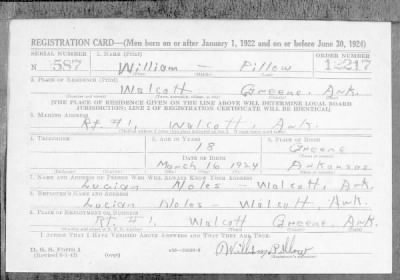 REGISTRATION CARD—(Men born on or after January 1, 1922 and on or before June 30, 1924)
SERIAL NUMBER 1. NAME (Print) ORDER NUMBER
N 587 William — Pillow 12217
(First) (Middle) (Last)
2. PLACE OF RESIDENCE (Print)
Walcott Greene, Ark.
[THE PLACE OF RESIDENCE GIVEN ON THE LINE ABOVE WILL DETERMINE LOCAL BOARD
JURISDICTION; LINE 2 OF REGISTRATION CERTIFICATE WILL BE IDENTICAL]
3. MAILING ADDRESS
Rt. #1, Walcott, Ark.
4. TELEPHONE 5. AGE IN YEARS 6. PLACE OF BIRTH
18 Greene
DATE OF BIRTH
March 16 1924 Arkansas
7. NAME AND ADDRESS OF PERSON WHO WILL ALWAYS KNOW YOUR ADDRESS
Lucian Noles — Walcott, Ark.
8. EMPLOYER'S NAME AND ADDRESS
Lucian Noles — Walcott, Ark.
9. PLACE OF EMPLOYMENT OR BUSINESS
Rt. #1, Walcott Greene, Ark.
I AFFIRM THAT I HAVE VERIFIED ABOVE ANSWERS AND THAT THEY ARE TRUE.
D. S. S. Form 1 (over) William Pillow